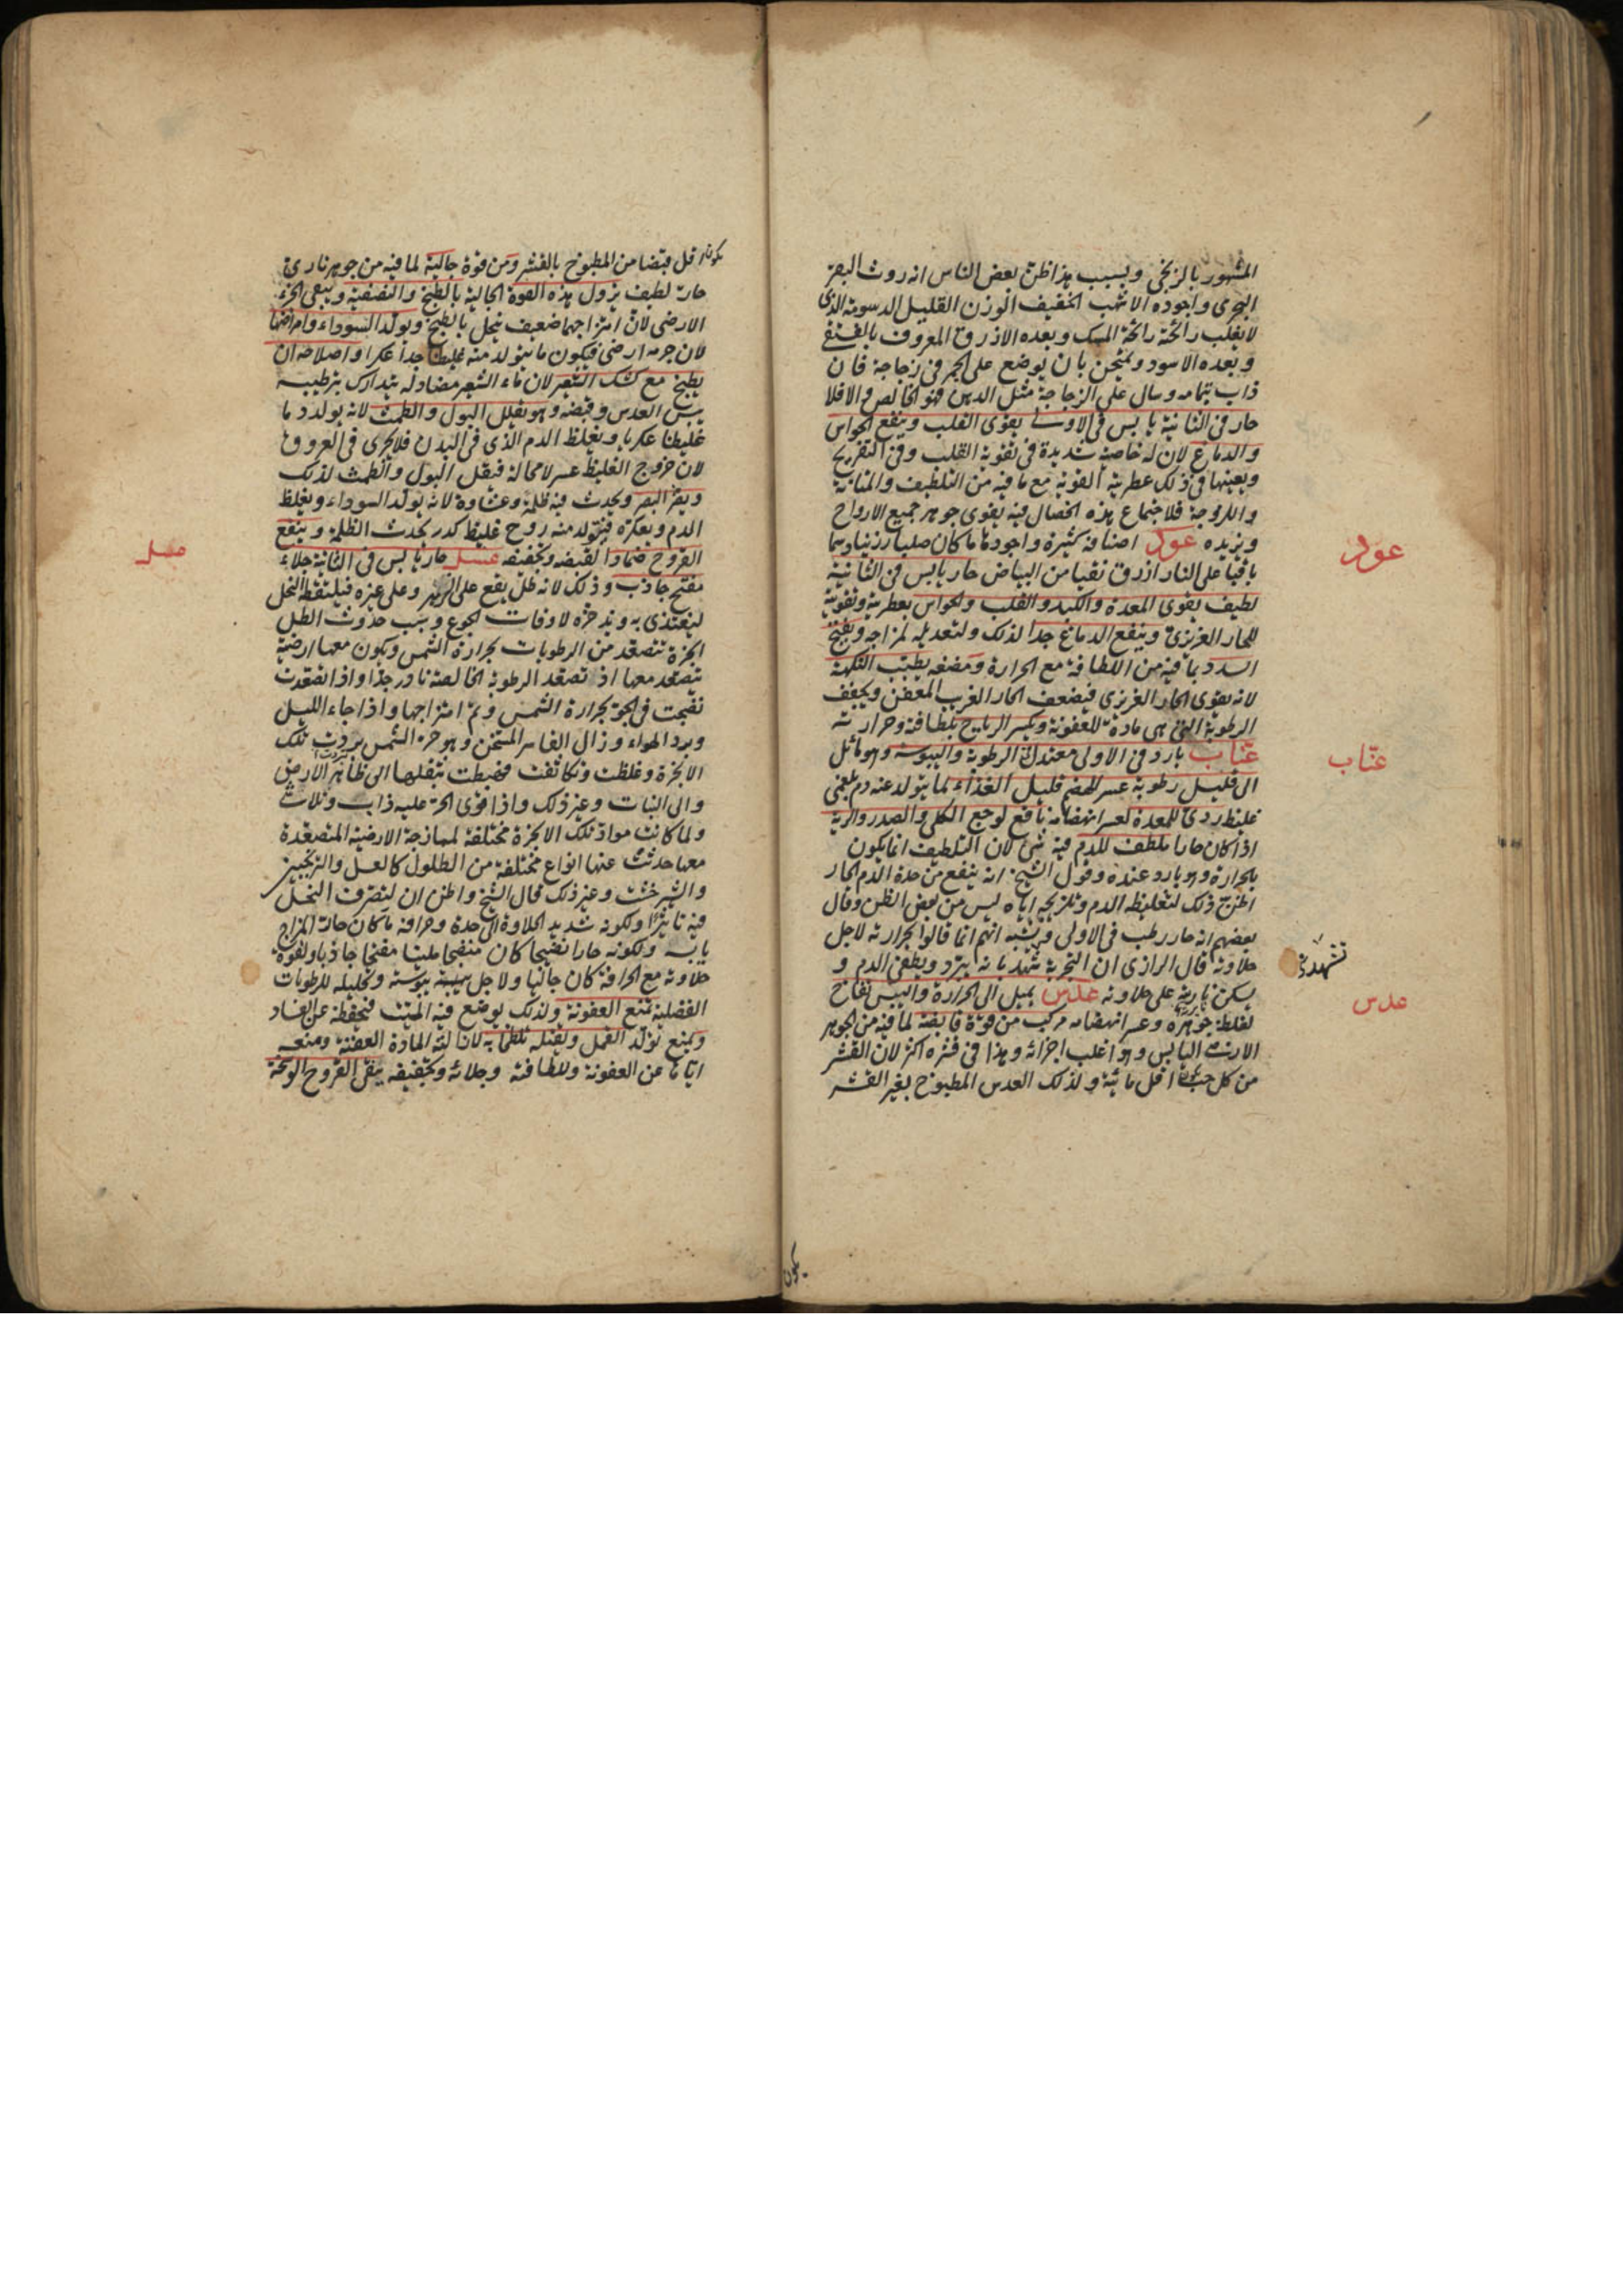 المشهور بالزنجى وبسبب هذا ظن بعض الناس انه روث البقر
البحرى واجوده الاشهب الخفيف الوزن القليل الدسومة الذى
لا يغلب رائحة رائحة المسك وبعده الازرق المعروف بالفستقى
وبعده الاسود ويمتحن بان يوضع على الجمر فى زجاجة فان
ذاب بتمامه وسال على الزجاجة مثل الدهن فهو الخالص والا فلا
حار فى الثانية يابس فى الاولى يقوى القلب وينفع الحواس
والدماغ لان له خاصية شديدة فى تقوية القلب وفى التفريح
ويعينها فى ذلك عطريته القوية مع ما فيه من التلطيف والمتانة
واللزوجة فلاجتماع هذه الخصال فيه يقوى جوهر جميع الارواح
ويزيده عود اصنافه كثيرة واجودها ما كان صلبا رزينا دسما
باقيا على النار ازرق نقيا من البياض حار يابس فى الثانية
لطيف يقوى المعدة والكبد والقلب والحواس بعطريته وتقويته
للحار الغريزى وينفع الدماغ جدا لذلك ولتعديله لمزاجه ويفتح
السدد بما فيه من اللطافة مع الحرارة ومضغه يطيب النكهة
لانه يقوى الحار الغريزى فيضعف الحار الغريب المعفن ويجفف
الرطوبة التى هى مادة للعفونة ويكسر الرياح بلطافته وحرارته
عناب بارد فى الاولى معتدل فى الرطوبة واليبوسة وهو مائل
الى قليل رطوبة عسر الهضم قليل الغذاء لما يتولد عنه دم بلغمى
غليظ ردئ للمعدة لعسر انهضامه نافع لوجع الكلى والصدر والرية
اذا كان حارا ملطف للدم فيه شئ لان التلطيف انما يكون
بالحرارة وهو بارد عنده وقول الشيخ انه ينفع من حدة الدم الحار
اظن ذلك لتغليظه الدم وتلزيجه اياه ليس من بعض الظن وقال
بعضهم انه حار رطب فى الاولى ويشبه انهم انما قالوا بحرارته لاجل
حلاوته قال الرازى ان التجربة تشهد بانه يبرد ويطفى الدم و
يسكن ناريته على حلاوته عدس يميل الى الحرارة واليبس نفاخ
لغلظة جوهره وعسر انهضامه مركب من قوة قابضة لما فيه من الجوهر
الارضى اليابس وهو اغلب اجزائه وهذا فى قشره اكثر لان القشر
من كل حب اقل مائية ولذلك العدس المطبوخ بغير القشر
عود
عناب
تشهد
عدس
يكون
يكون اقل قبضا من المطبوخ بالقشر ومن قوة جالية لما فيه من جوهر نارى
حار لطيف يزول هذه القوة الجالية بالطبخ والتصفية ويبقى الجزء
الارضى لان امتزاجهما ضعيف ينحل بالطبخ ويولد السوداء وامراضها
لان جرمه ارضى فيكون ما يتولد منه غليظا جدا عكرا واصلاحه ان
يطبخ مع كشك الشعير لان ماء الشعير مضاد له يتدارك بترطيبه
يبس العدس وقبضه وهو يقلل البول والطمث لانه يولد دما
غليظا عكريا ويغلظ الدم الذى فى البدن فلا يجرى فى العروق
لان خروج الغليظ عسر لا محالة فيقل البول والطمث لذلك
ويضر البصر ويحدث فيه ظلمة وعشاوة لانه يولد السوداء ويغلظ
الدم ويعكره فيتولد منه روح غليظ كدر يحدث الظلمة وينفع
القروح ضمادا لقبضه وتجفيفه عسل حار يابس فى الثانية جلاء
مفتح جاذب وذلك لانه طل يقع على الزهر وعلى غيره فيلتقطه النحل
ليغتذى به ويدخره لاوقات الجوع وسبب حدوث الطل
ابخرة تتصعد من الرطوبات بحرارة الشمس ويكون معها ارضية
تتصعد معها اذ تصعد الرطوبة الخالصة نادر جدا واذا تصعدت
نضجت فى الجو بحرارة الشمس وتم امتزاجها واذا جاء الليل
وبرد الهواء وزال القاسر المسخن وهو حر الشمس بردت تلك
الابخرة وغلظت وتكاثفت فهبطت بثقلها الى ظاهر الارض
والى النبات وغير ذلك واذا قوى الحر عليه ذاب وتلاشى
ولما كانت مواد تلك الابخرة مختلفة لممازجة الارضية المتصعدة
معها حدثت عنها انواع مختلفة من الطلول كالعسل والترنجبين
والشيرخشت وغير ذلك قال الشيخ واظن ان لتصرف النحل
فيه تاثيرا ولكونه شديد الحلاوة الى حدة وحرافة ما كان حار المزاج
يابسه ولكونه حارا نضيجا كان منضجا ملينا مفتحا جاذبا ولقوة
حلاوته مع الحرافة كان جاليا ولاجل يبوسته وتحليله للرطوبات
الفضلية يمنع العفونة ولذلك يوضع فيه الميت فيحفظه عن الفساد
ويمنع تولد القمل ويقتله تلطخا به لازالته المادة العفنة ومنعه
اياها عن العفونة وللطافته وجلائه وتجفيفه ينقى القروح الوسخة
عسل